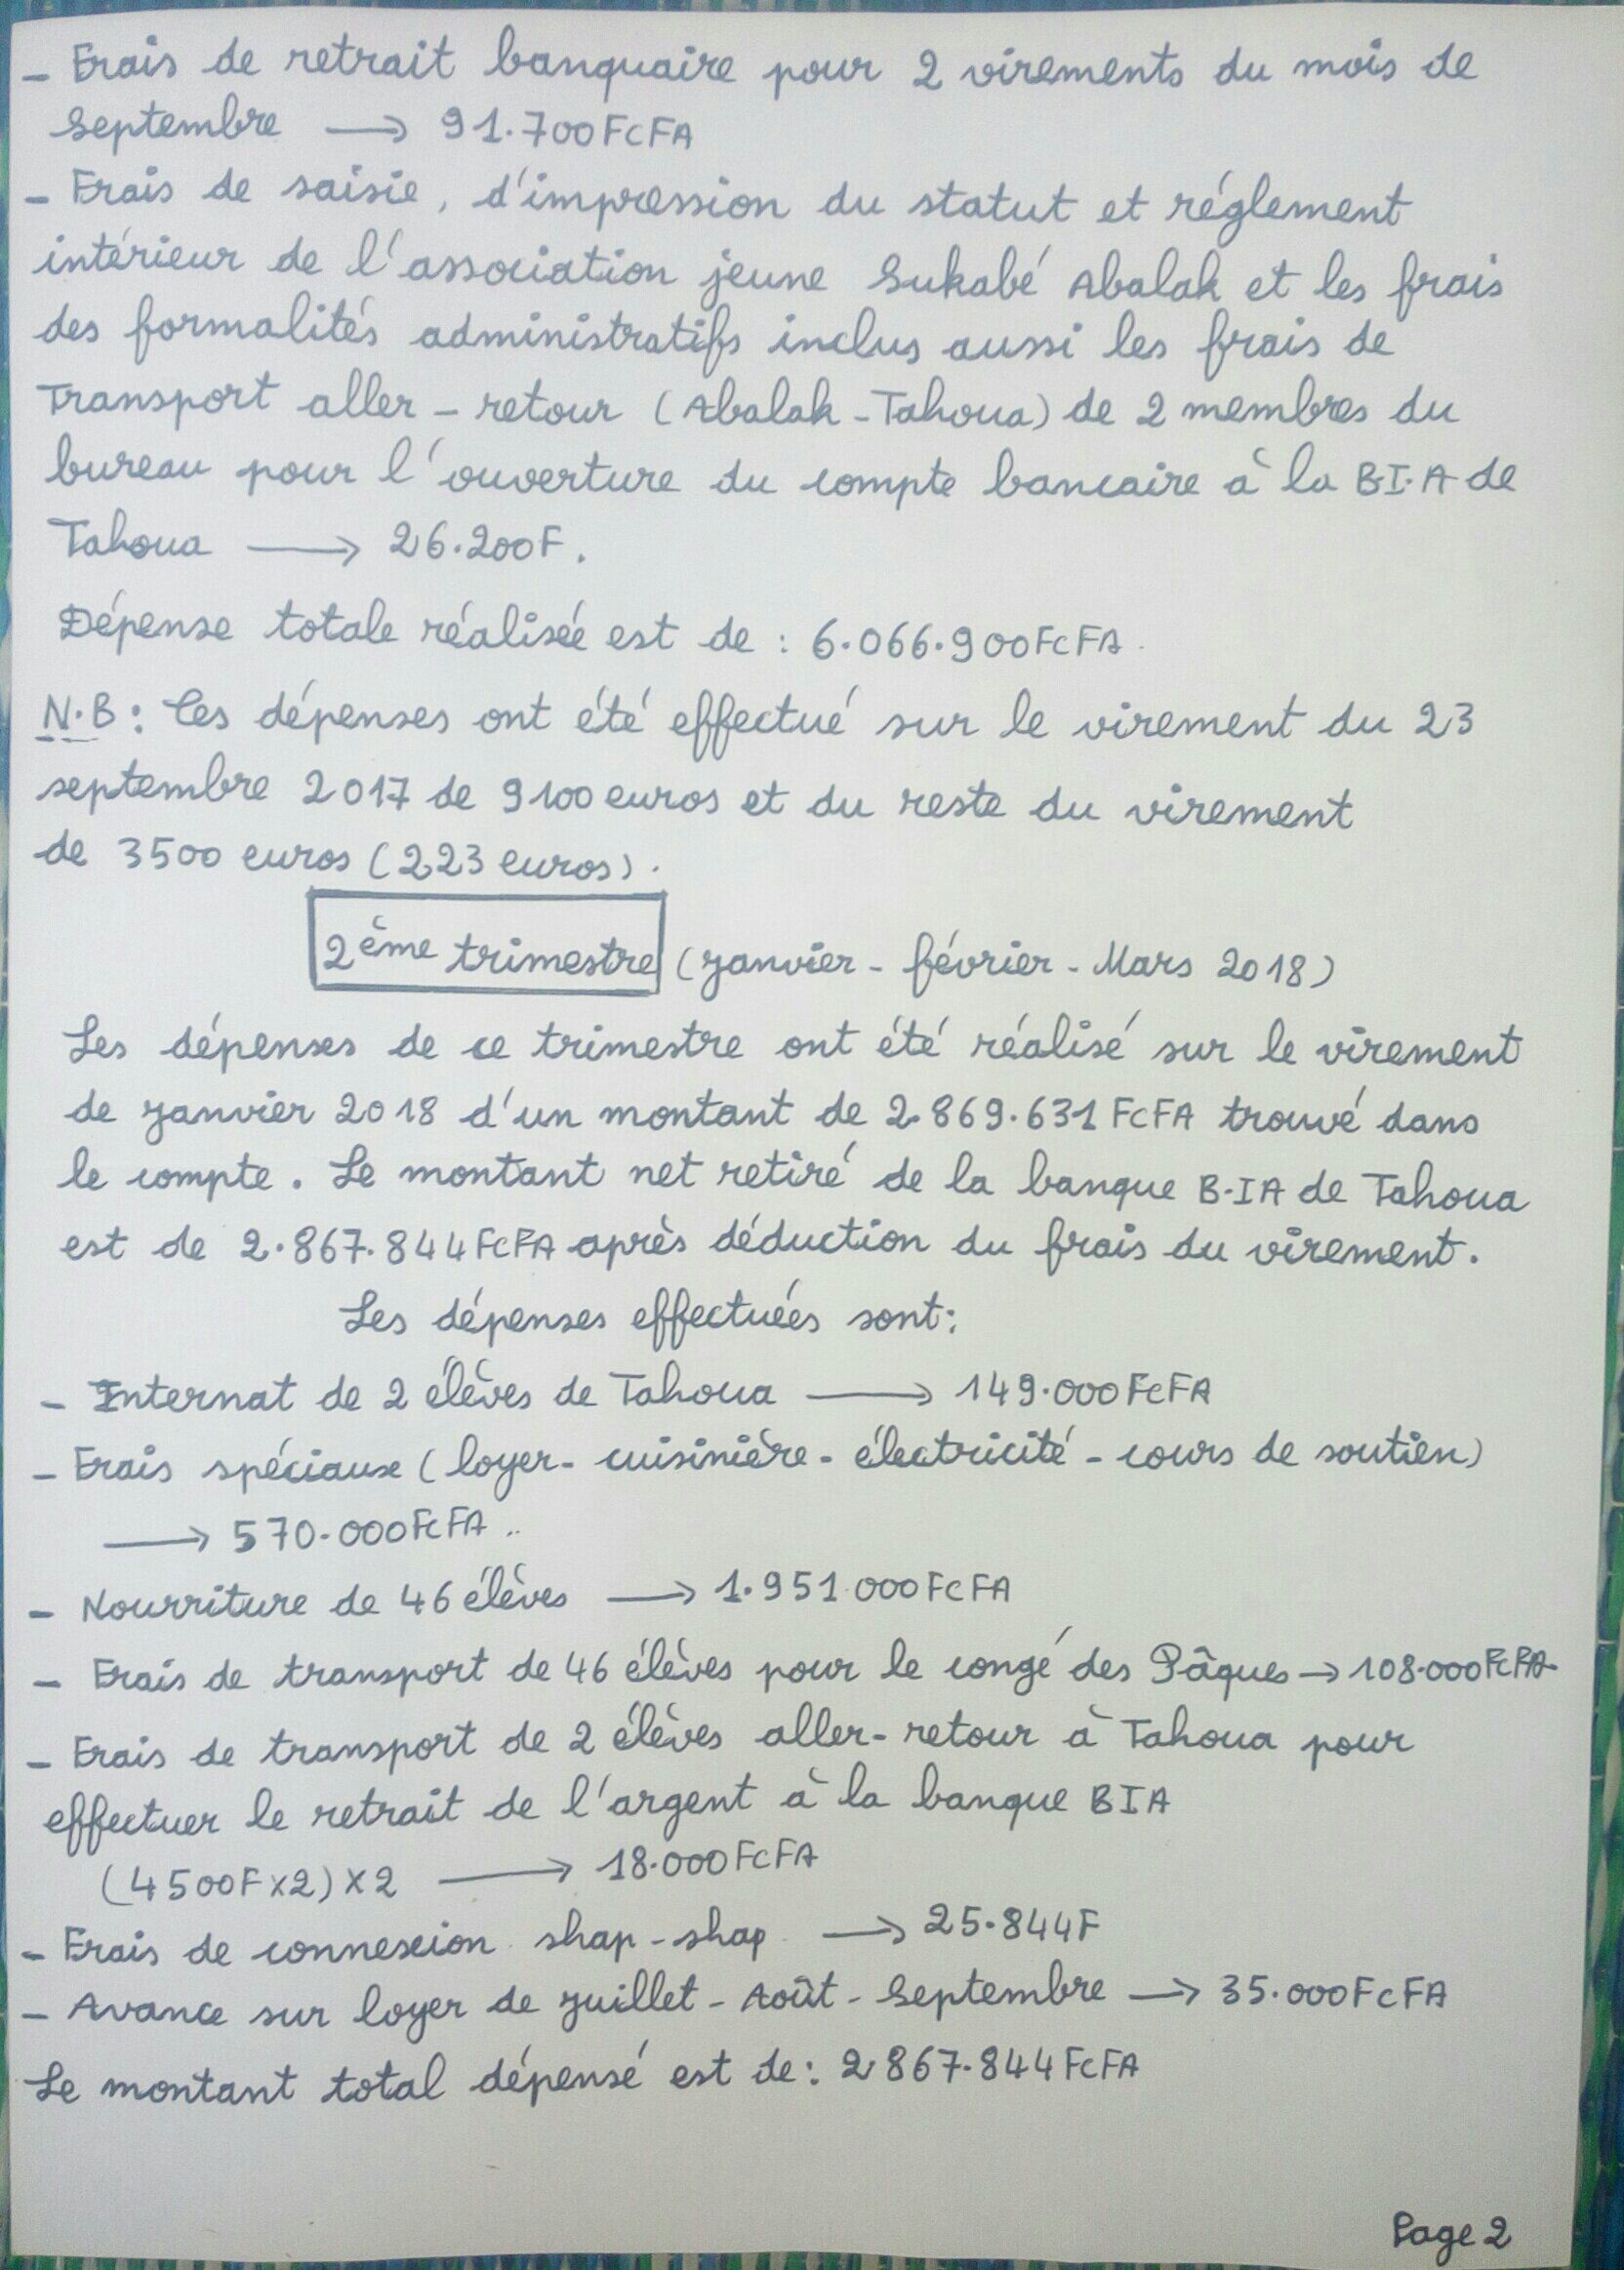 - Frais de retrait banquaire pour 2 virements du mois de
septembre → 91.700FCFA
- Frais de saisie, d'impression du statut et réglement
intérieur de l'association jeune Sukabé Abalak et les frais
des formalités administratifs inclus aussi les frais de
Transport aller - retour (Abalak - Tahoua) de 2 membres du
bureau pour l'ouverture du compte bancaire à la B.I.A de
Tahoua → 26.200F.
Dépense totale réalisée est de : 6.066.900FCFA.
N.B: Ces dépenses ont été effectué sur le virement du 23
septembre 2017 de 9100 euros et du reste du virement
de 3500 euros (223 euros).
2ème trimestre (janvier - février - Mars 2018)
Les dépenses de ce trimestre ont été réalisé sur le virement
de janvier 2018 d'un montant de 2.869.631 FCFA trouvé dans
le compte. Le montant net retiré de la banque B.IA de Tahoua
est de 2.867.844FCFA après déduction du frais du virement.
Les dépenses effectuées sont:
- Internat de 2 élèves de Tahoua → 149.000FCFA
- Frais spéciaux (loyer- cuisinière - électricité - cours de soutien)
→ 570.000FCFA ..
- Nourriture de 46 élèves → 1.951.000FCFA
- Frais de transport de 46 élèves pour le congé des Pâques → 108.000FCFA
- Frais de transport de 2 élèves aller- retour à Tahoua pour
effectuer le retrait de l'argent à la banque BIA
(4500F x2) x2 → 18.000FCFA
- Frais de connexion shap - shap → 25.844F
- Avance sur loyer de juillet - Août - Septembre → 35.000FCFA
Le montant total dépensé est de: 2.867.844FCFA
Page 2